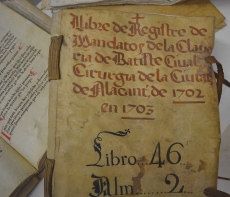 Llibre de Registre de
Mandatos de la Clave
ria de Batiste
Cirurgia de la Ciutat
de Alacant, de 1702
en 1703
Libro.. 46..
Alm.... 2....